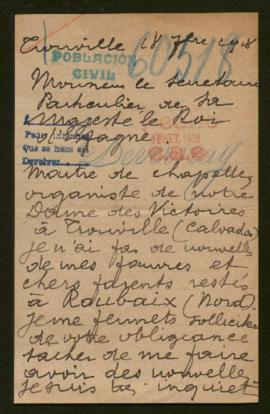 Trouville 18 7bre 1918
60518
POBLACIÓN
CIVIL
Monsieur le Secrétaire
Particulier de Sa
Majesté le Roi
d'Espagne
Que se haga
Devolver
1918
Maître de chapelle,
organiste de notre
Dame des Victoires
à Trouville (Calvados)
je n'ai pas de nouvelles
de mes pauvres et
chers parents restés
à Roubaix (Nord).
Je me permets solliciter
de votre obligeance
tacher de me faire
avoir des nouvelles
je suis inquiet